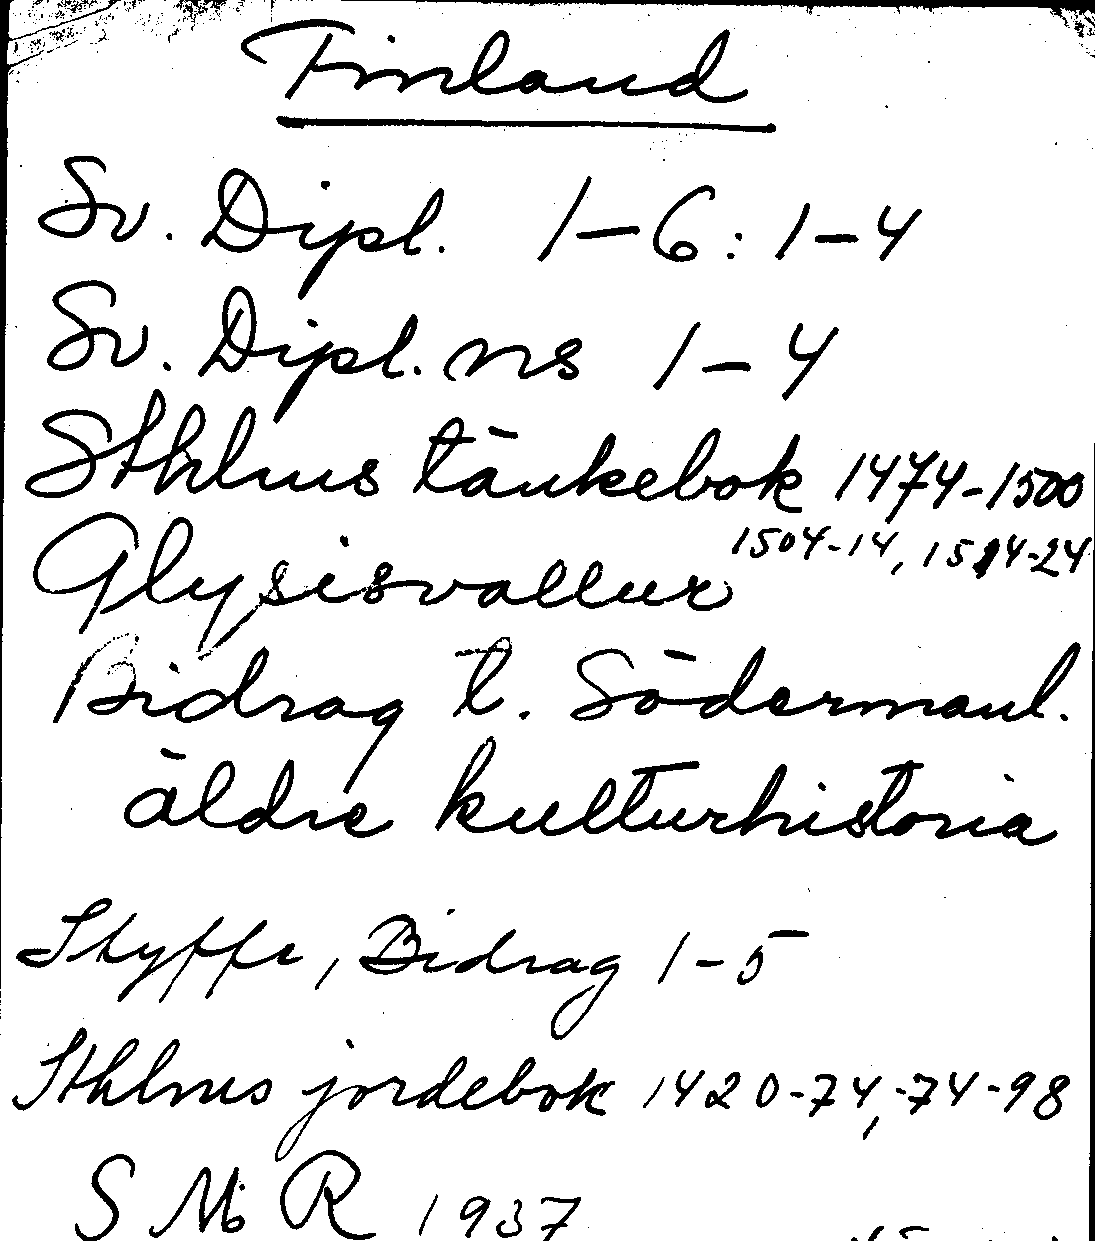 Finland
Sv. Dipl. 1-6:1-4
Sv. Dipl. ns 1-4
Sthlms tänkebok 1474-1500
1504-14, 1514-24
Glysisvallur
Bidrag t. Södermanl.
äldre kulturhistoria
Styffe, Bidrag 1-5
Sthlms jordebok 1420-74,-74-98
SMR 1937